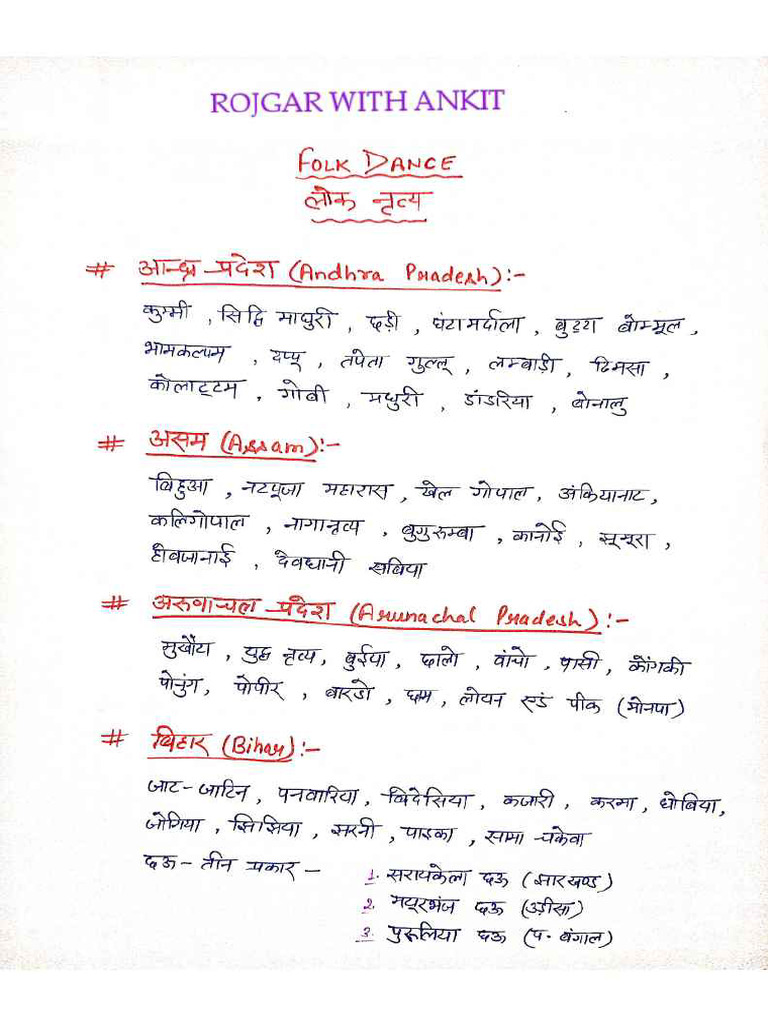 ROJGAR WITH ANKIT
FOLK DANCE
लोक नृत्य
# आन्ध्र प्रदेश (Andhra Pradesh):-
कुम्मी , सिद्धि माधुरी , छड़ी , घंटामर्दाला , बुट्टा बोम्मूल ,
भामकलाम , दप्पू , तपेता गुल्लू , लम्बाड़ी , ढिमसा ,
कोलाट्टम , गोबी , मधुरी , डांडरिया , बोनालु
# असम (Assam):-
बिहुआ , नटपूजा महारास , खेल गोपाल , अंकियानाट ,
कलिगोपाल , नागानृत्य , बुगुरुम्बा , कानोई , झूमूरा ,
होबजानाई , देवधानी सबिया
# अरुवाचल प्रदेश (Arunachal Pradesh):-
मुखौटा , युद्ध नृत्य , बुईया , छालो , वांचो , पासी , कोंगकी
पोनुंग , पोपीर , बारडो , छम , लोयन एंड पीक (मोनपा)
# बिहार (Bihar):-
जाट-जाटिन , पनवारिया , बिदेसिया , कजारी , करमा , धोबिया ,
जोगिया , झिझिया , झरनी , पाइका , सामा-चकेवा
छऊ - तीन प्रकार - 1. सरायकेला छऊ (झारखण्ड)
2. मयूरभंज छऊ (उड़ीसा)
3. पुरुलिया छऊ (प. बंगाल)